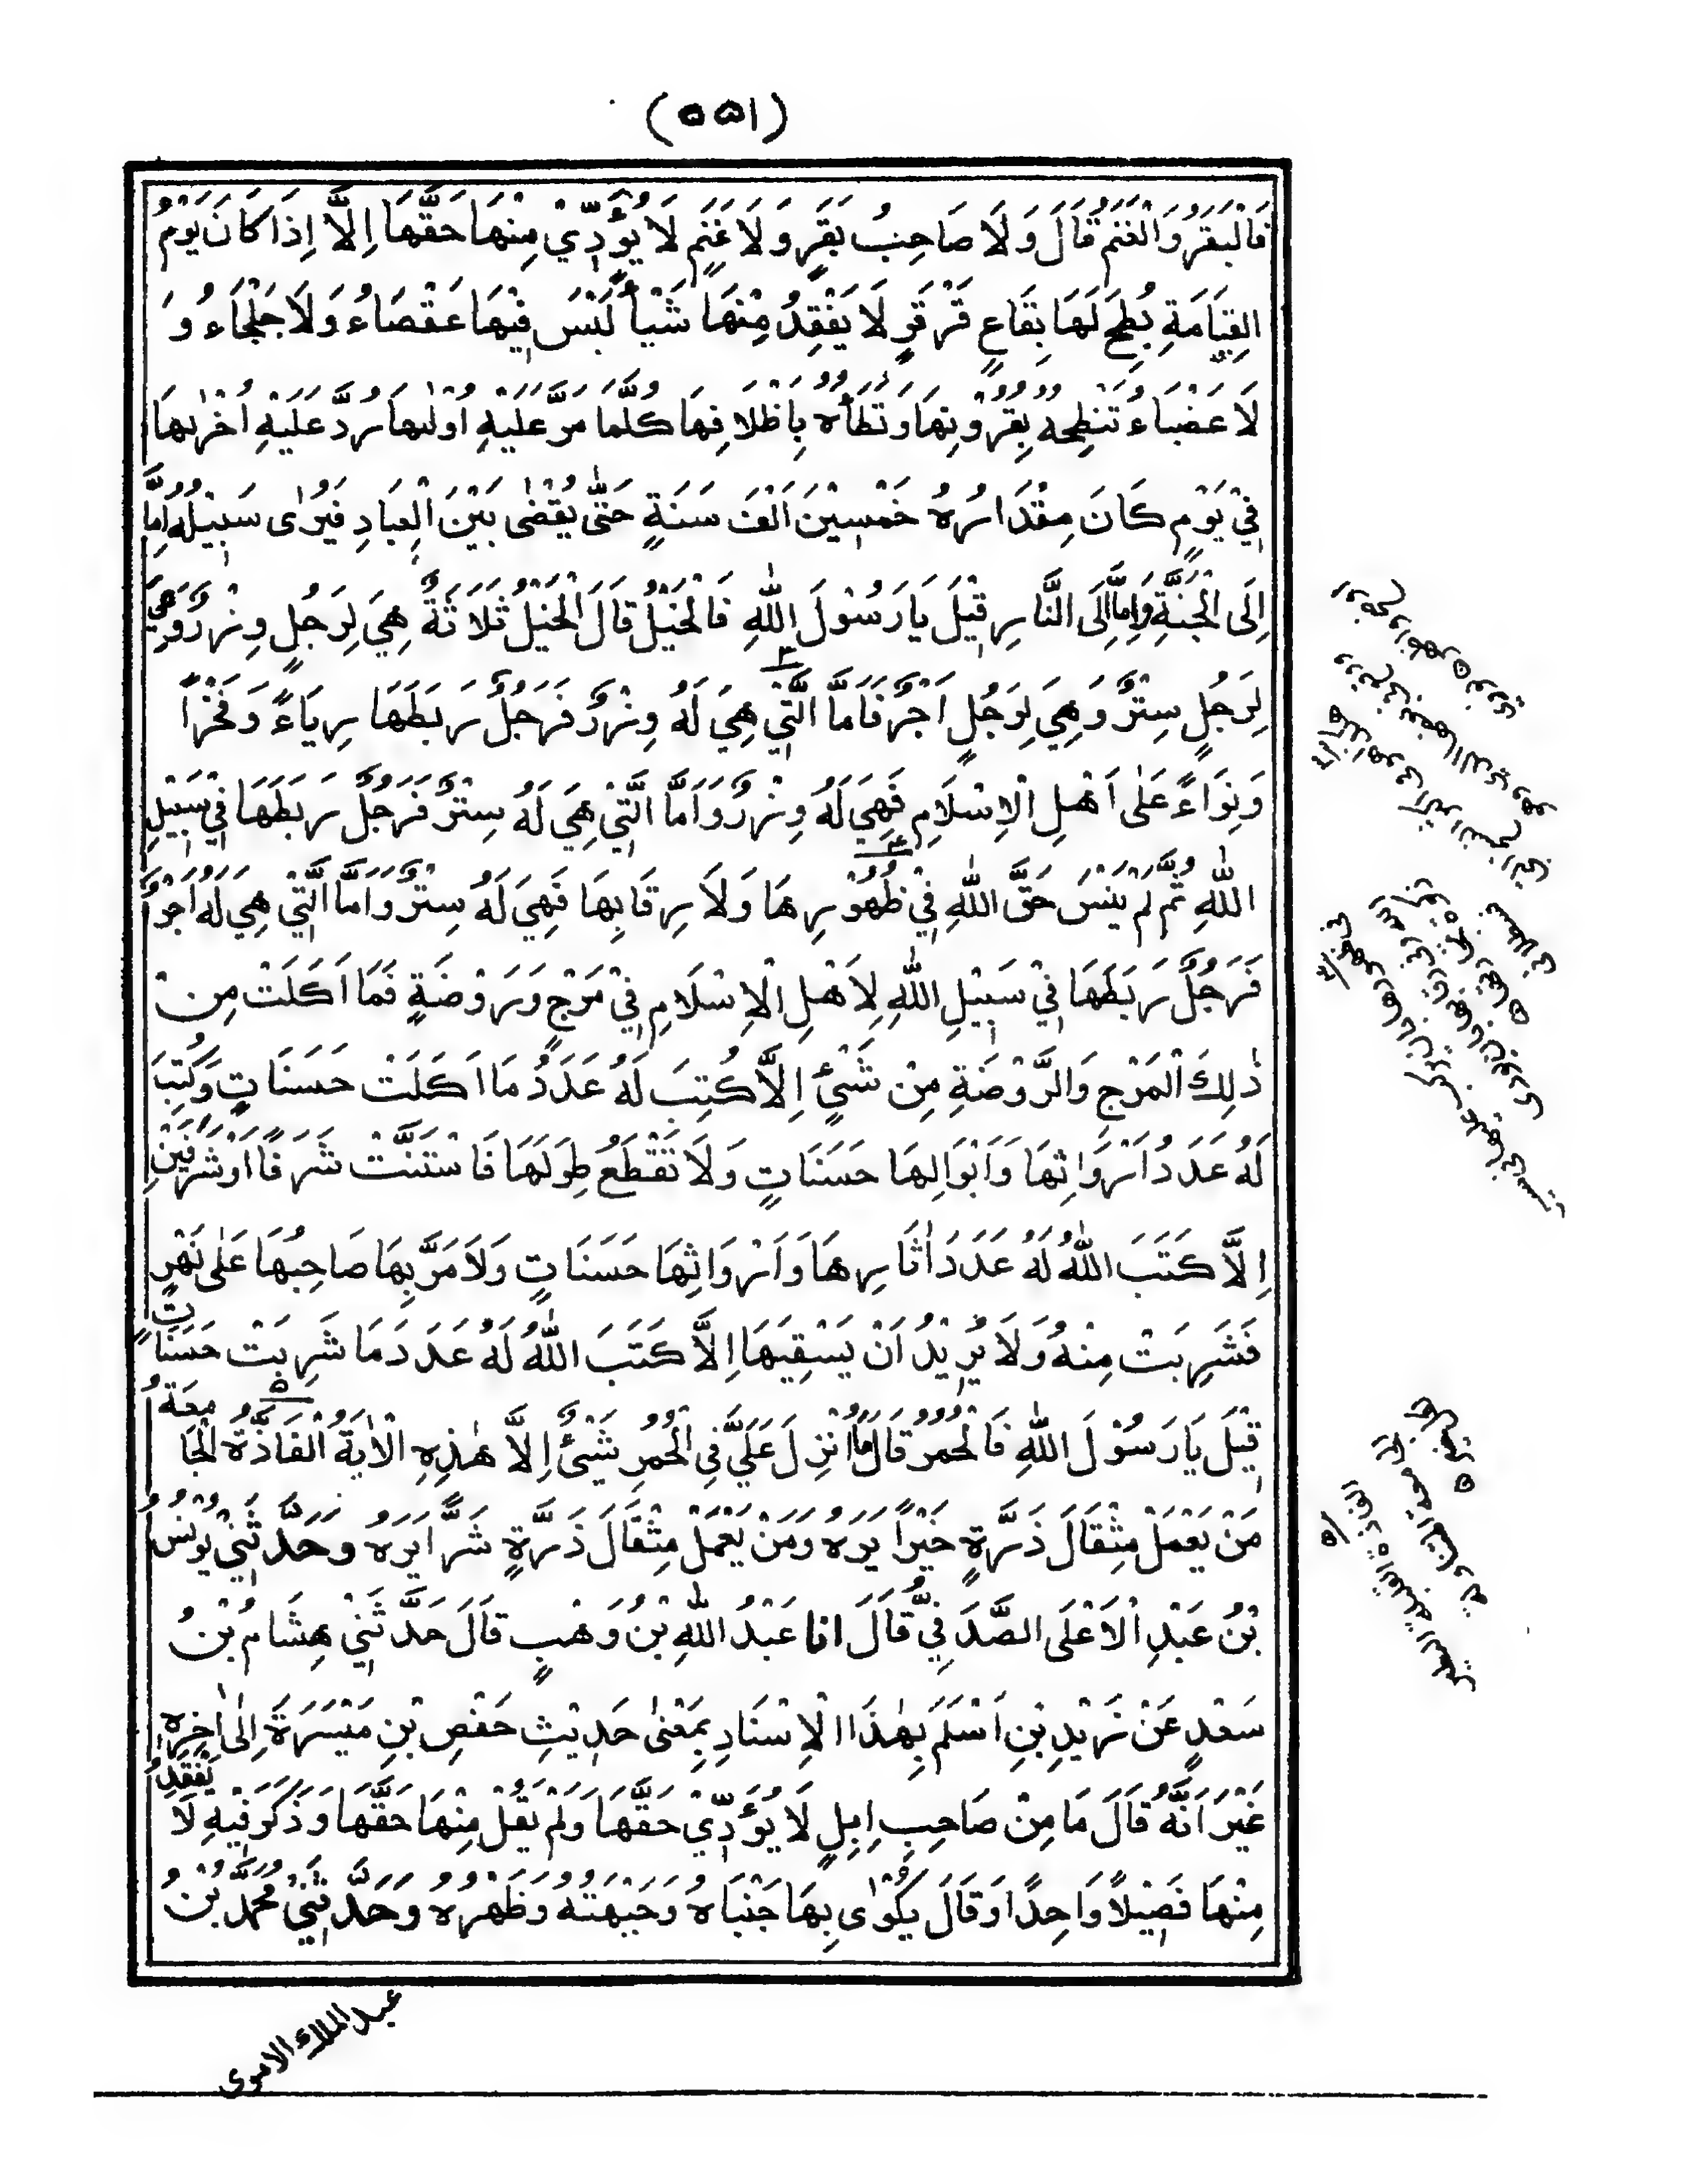 (٥٥١)
فَالْبَقَرُ وَالْغَنَمُ قَالَ وَلَا صَاحِبُ بَقَرٍ وَلَا غَنَمٍ لَا يُؤَدِّيْ مِنْهَا حَقَّهَا اِلَّا اِذَا كَانَ يَوْمُ
القِيَامَةِ بُطِحَ لَهَا بِقَاعٍ قَرْقَرٍ لَا يَفْقِدُ مِنْهَا شَيْأً لَيْسَ فِيْهَا عَقْصَاءُ وَلَا جَلْحَاءُ وَ
لَا عَضْبَاءُ تَنْطِحُهُ بِقُرُوْنِهَا وَتَطَأُهُ بِاَظْلَافِهَا كُلَّمَا مَرَّ عَلَيْهِ اُوْلٰىهَا رُدَّ عَلَيْهِ اُخْرٰىهَا
فِيْ يَوْمٍ كَانَ مِقْدَارُهُ خَمْسِيْنَ اَلْفَ سَنَةٍ حَتّٰى يُقْضٰى بَيْنَ الْعِبَادِ فَيُرٰى سَبِيْلُهُ اِمَّا
اِلَى الْجَنَّةِ وَاِمَّا اِلَى النَّارِ قِيْلَ يَا رَسُوْلَ اللّٰهِ فَالْخَيْلُ قَالَ الْخَيْلُ ثَلَاثَةٌ هِيَ لِرَجُلٍ وِزْرٌ وَهِيَ
لِرَجُلٍ سِتْرٌ وَهِيَ لِرَجُلٍ اَجْرٌ فَاَمَّا الَّتِيْ هِيَ لَهُ وِزْرٌ فَرَجُلٌ رَبَطَهَا رِيَاءً وَفَخْرًا
وَنِوَاءً عَلٰى اَهْلِ الْاِسْلَامِ فَهِيَ لَهُ وِزْرٌ وَاَمَّا الَّتِيْ هِيَ لَهُ سِتْرٌ فَرَجُلٌ رَبَطَهَا فِيْ سَبِيْلِ
اللّٰهِ ثُمَّ لَمْ يَنْسَ حَقَّ اللّٰهِ فِيْ ظُهُوْرِهَا وَلَا رِقَابِهَا فَهِيَ لَهُ سِتْرٌ وَاَمَّا الَّتِيْ هِيَ لَهُ اَجْرٌ
فَرَجُلٌ رَبَطَهَا فِيْ سَبِيْلِ اللّٰهِ لِاَهْلِ الْاِسْلَامِ فِيْ مَرْجٍ وَرَوْضَةٍ فَمَا اَكَلَتْ مِنْ
ذٰلِكَ الْمَرْجِ وَالرَّوْضَةِ مِنْ شَيْئٍ اِلَّا كُتِبَ لَهُ عَدَدُ مَا اَكَلَتْ حَسَنَاتٍ وَكُتِبَ
لَهُ عَدَدُ اَرْوَاثِهَا وَاَبْوَالِهَا حَسَنَاتٍ وَلَا تَقْطَعُ طِوَلَهَا فَاسْتَنَّتْ شَرَفًا اَوْ شَرَفَيْنِ
اِلَّا كَتَبَ اللّٰهُ لَهُ عَدَدَ اٰثَارِهَا وَاَرْوَاثِهَا حَسَنَاتٍ وَلَا مَرَّ بِهَا صَاحِبُهَا عَلٰى نَهْرٍ
فَشَرِبَتْ مِنْهُ وَلَا يُرِيْدُ اَنْ يَسْقِيَهَا اِلَّا كَتَبَ اللّٰهُ لَهُ عَدَدَ مَا شَرِبَتْ حَسَنَاتٍ
قِيْلَ يَا رَسُوْلَ اللّٰهِ فَالْحُمُرُ قَالَ مَا اُنْزِلَ عَلَيَّ فِي الْحُمُرِ شَيْئٌ اِلَّا هٰذِهِ الْاٰيَةُ الْفَاذَّةُ الْجَامِعَةُ
مَنْ يَعْمَلْ مِثْقَالَ ذَرَّةٍ خَيْرًا يَرَهُ وَمَنْ يَعْمَلْ مِثْقَالَ ذَرَّةٍ شَرًّا يَرَهُ وَحَدَّثَنِيْ يُوْنُسُ
بْنُ عَبْدِ الْاَعْلَى الصَّدَفِيُّ قَالَ انا عَبْدُ اللّٰهِ بْنُ وَهْبٍ قَالَ حَدَّثَنِيْ هِشَامُ بْنُ
سَعْدٍ عَنْ زَيْدِ بْنِ اَسْلَمَ بِهٰذَا الْاِسْنَادِ بِمَعْنٰى حَدِيْثِ حَفْصِ بْنِ مَيْسَرَةَ اِلٰى اٰخِرِهِ
غَيْرَ اَنَّهُ قَالَ مَا مِنْ صَاحِبِ اِبِلٍ لَا يُؤَدِّيْ حَقَّهَا وَلَمْ يَقُلْ مِنْهَا حَقَّهَا وَذَكَرَ فِيْهِ لَا يَفْقِدُ
مِنْهَا فَصِيْلًا وَاحِدًا وَقَالَ يُكْوٰى بِهَا جَنْبَاهُ وَجَبْهَتُهُ وَظَهْرُهُ وَحَدَّثَنِيْ مُحَمَّدُ بْنُ
عبد الملك الاموى